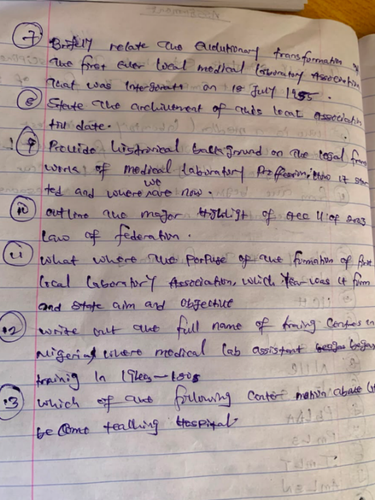 7 Briefly relate the evolutionary transformation of
the first ever local medical laboratory Association
that was on 18 July 1955.
8 State the of this local Association
till date.
9 Provide historical background on the legal frame
work of medical laboratory it star
ted and where we are now.
10 outline the major Highlight of 11 of 2003
law of federation.
11 What where the of the formation of first
local laboratory Association, which year was it form
and state aim and objective
12 write out the full name of traing Centres in
Nigeria where medical lab assistant began
trainig in
13 which of the following center above
become teaching Hospital.